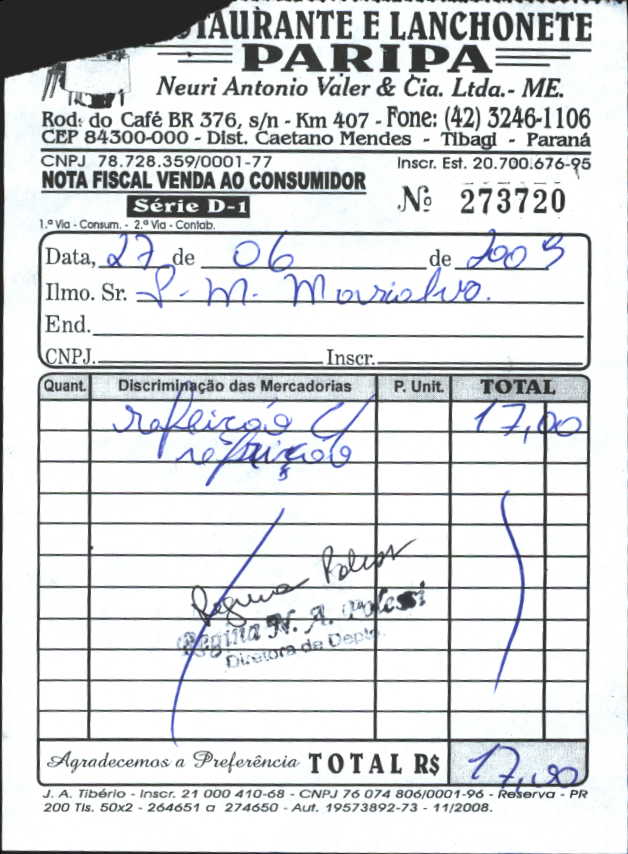 RESTAURANTE E LANCHONETE
PARIPA
Neuri Antonio Valer & Cia. Ltda.- ME.
Rod. do Café BR 376, s/n - Km 407 - Fone: (42) 3246-1106
CEP 84300-000 - Dist. Caetano Mendes - Tibagi - Paraná
CNPJ 78.728.359/0001-77 Inscr. Est. 20.700.676-95
NOTA FISCAL VENDA AO CONSUMIDOR
Nº 273720
Série D-1
1.ª Via - Consum. - 2.ª Via - Contab.
Data, 27 de 06 de 2009
Ilmo. Sr. P. M. Marialva.
End.
CNPJ. Inscr.
Quant. Discriminação das Mercadorias P. Unit. TOTAL
refeição c/ 17,00
Regina Polessi
Regina N. A. Polessi
Diretora de Depto.
Agradecemos a Preferência TOTAL R$ 17,00
J. A. Tibério - Inscr. 21 000 410-68 - CNPJ 76 074 806/0001-96 - Reserva - PR
200 Tls. 50x2 - 264651 a 274650 - Aut. 19573892-73 - 11/2008.